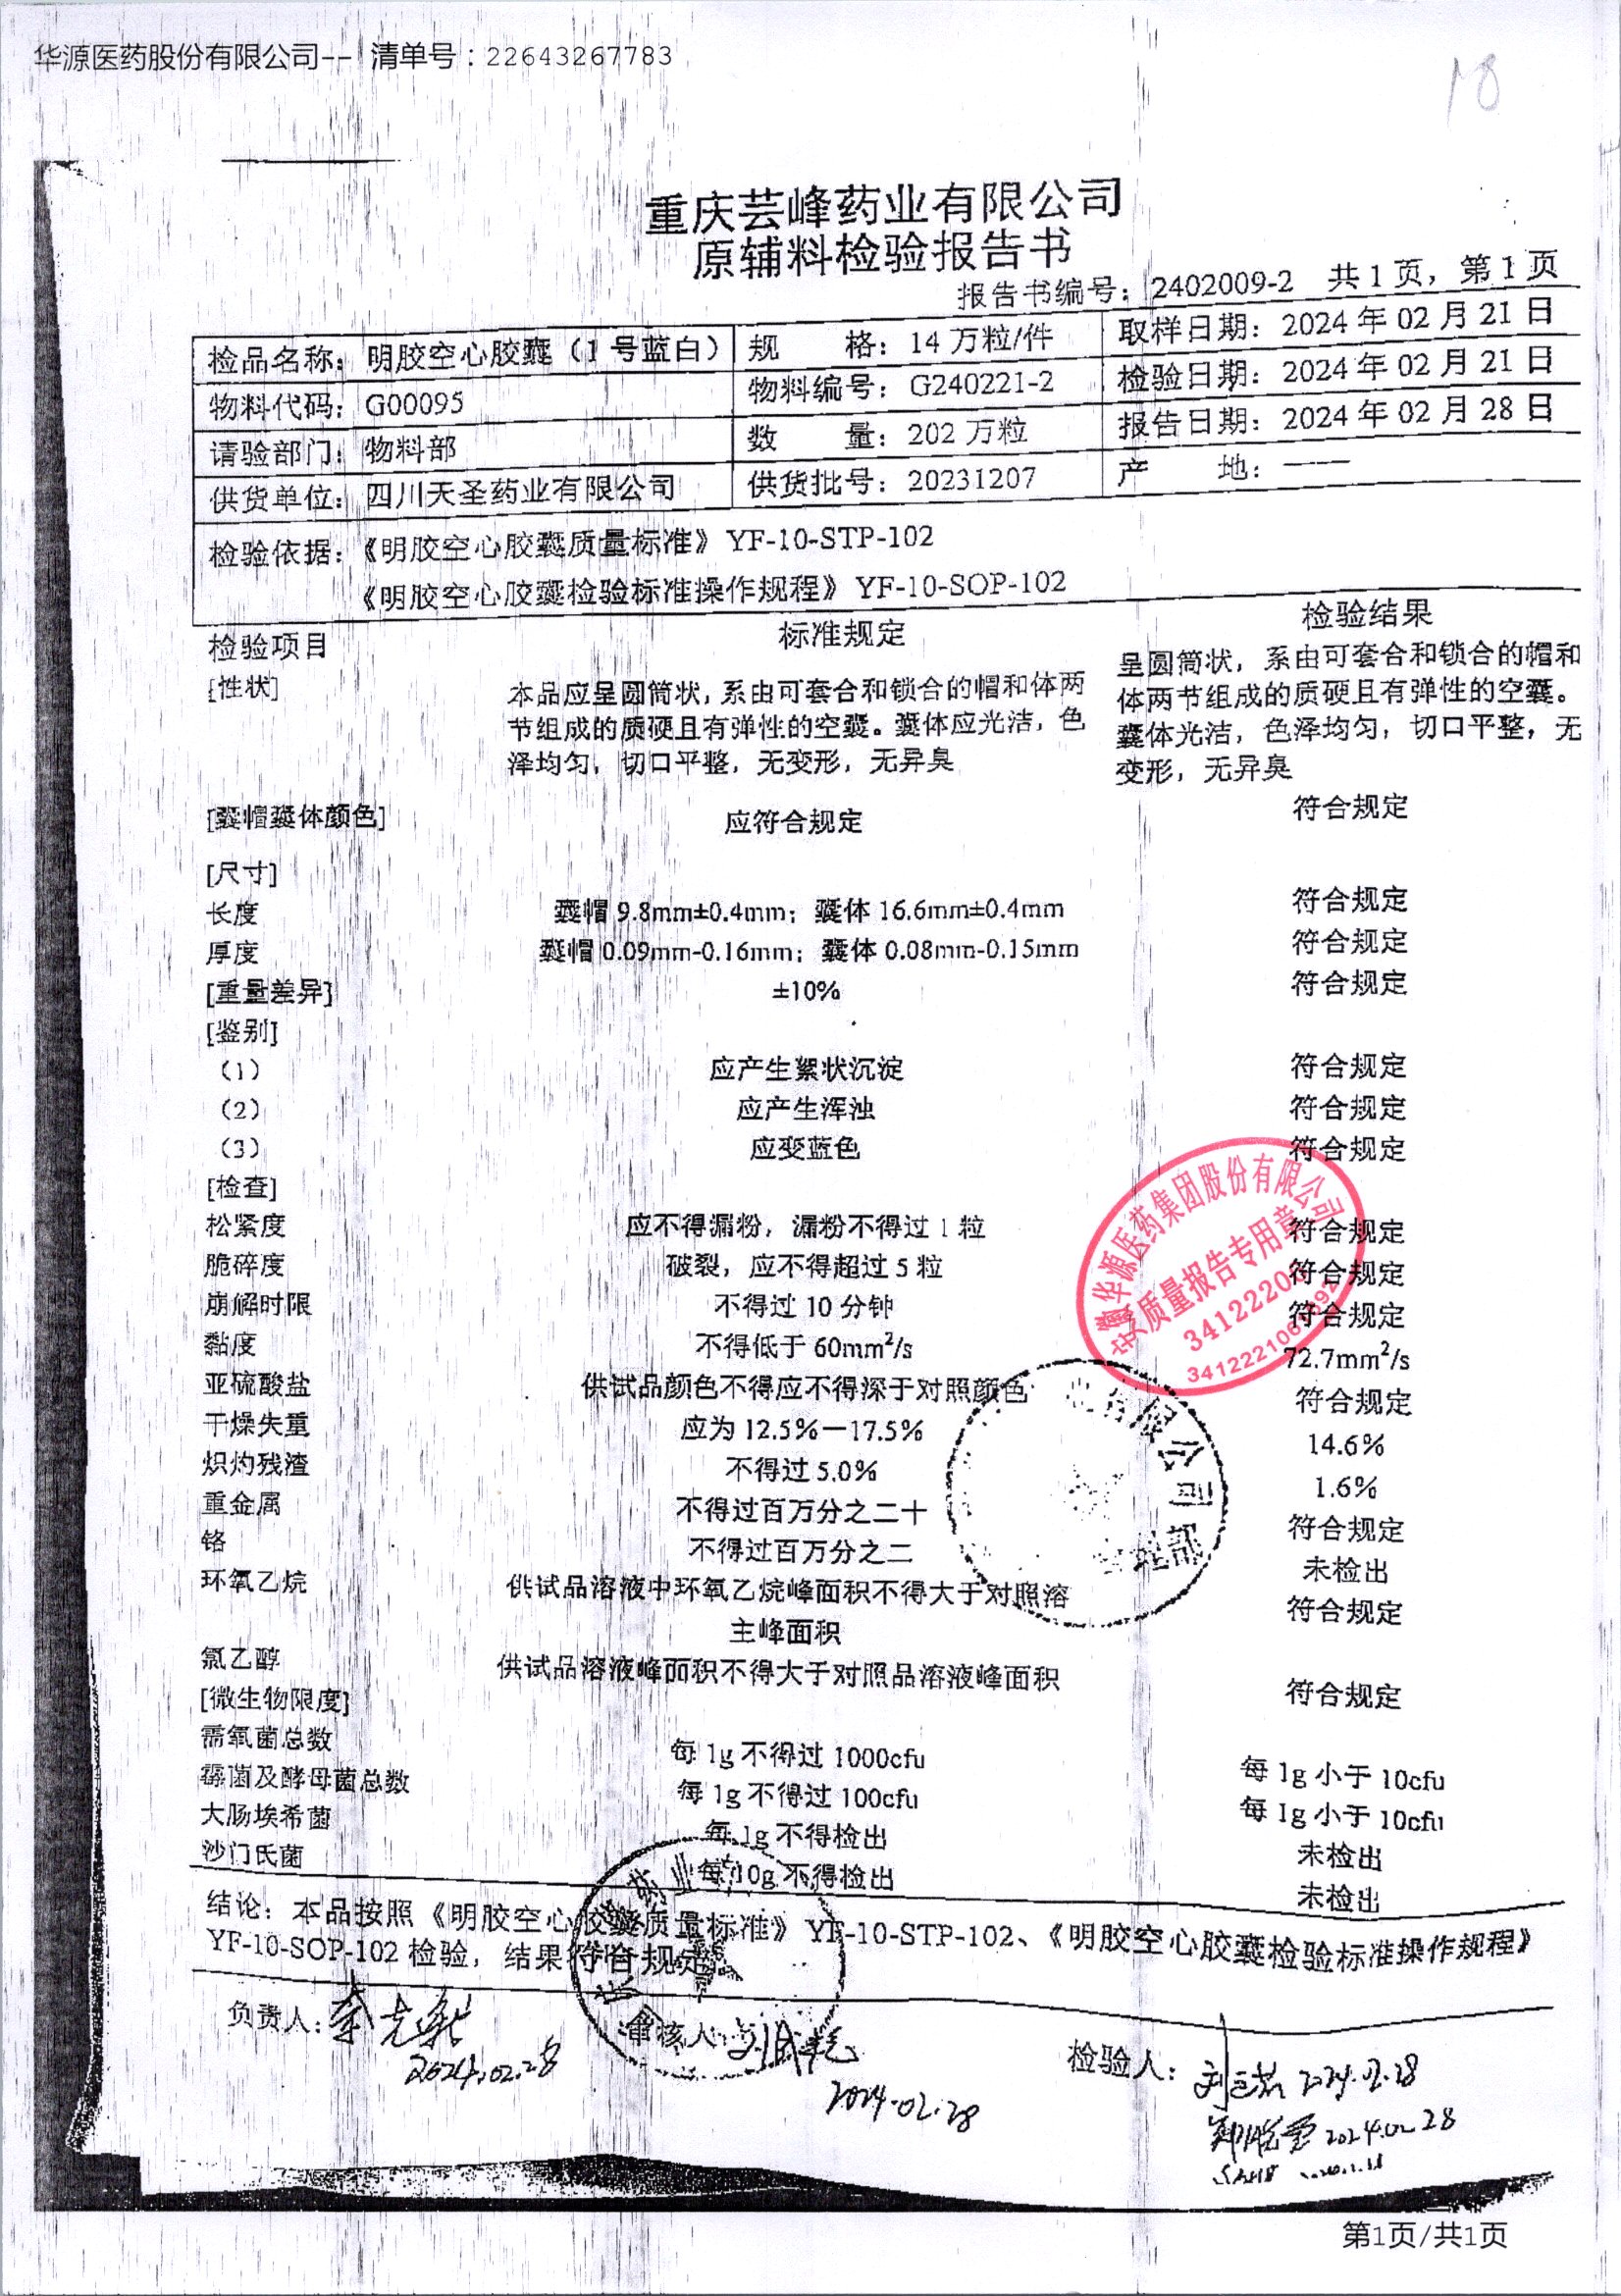 华源医药股份有限公司-- 清单号：22643267783
18
重庆芸峰药业有限公司
原辅料检验报告书
报告书编号：2402009-2 共1页，第1页
检品名称：明胶空心胶囊（1号蓝白） 规 格：14万粒/件 取样日期：2024年02月21日
物料代码：G00095 物料编号：G240221-2 检验日期：2024年02月21日
请验部门：物料部 数 量：202万粒 报告日期：2024年02月28日
供货单位：四川天圣药业有限公司 供货批号：20231207 产 地：——
检验依据：《明胶空心胶囊质量标准》YF-10-STP-102
《明胶空心胶囊检验标准操作规程》YF-10-SOP-102
检验项目 标准规定 检验结果
[性状] 本品应呈圆筒状，系由可套合和锁合的帽和体两 呈圆筒状，系由可套合和锁合的帽和
节组成的质硬且有弹性的空囊。囊体应光洁，色 体两节组成的质硬且有弹性的空囊。
泽均匀，切口平整，无变形，无异臭 囊体光洁，色泽均匀，切口平整，无
变形，无异臭
[囊帽囊体颜色] 应符合规定 符合规定
[尺寸]
长度 囊帽9.8mm±0.4mm；囊体16.6mm±0.4mm 符合规定
厚度 囊帽0.09mm-0.16mm；囊体0.08mm-0.15mm 符合规定
[重量差异] ±10% 符合规定
[鉴别]
（1） 应产生絮状沉淀 符合规定
（2） 应产生浑浊 符合规定
（3） 应变蓝色 符合规定
[检查]
松紧度 应不得漏粉，漏粉不得过1粒 符合规定
脆碎度 破裂，应不得超过5粒 符合规定
崩解时限 不得过10分钟 符合规定
黏度 不得低于60mm²/s 72.7mm²/s
亚硫酸盐 供试品颜色不得应不得深于对照颜色 符合规定
干燥失重 应为12.5%—17.5% 14.6%
炽灼残渣 不得过5.0% 1.6%
重金属 不得过百万分之二十 符合规定
铬 不得过百万分之二 未检出
环氧乙烷 供试品溶液中环氧乙烷峰面积不得大于对照溶 符合规定
主峰面积
氯乙醇 供试品溶液峰面积不得大于对照品溶液峰面积 符合规定
[微生物限度]
需氧菌总数 每1g不得过1000cfu 每1g小于10cfu
霉菌及酵母菌总数 每1g不得过100cfu 每1g小于10cfu
大肠埃希菌 每1g不得检出 未检出
沙门氏菌 每10g不得检出 未检出
安徽华源医药集团股份有限公司
质量报告专用章
有限公司
结论：本品按照《明胶空心胶囊质量标准》YF-10-STP-102、《明胶空心胶囊检验标准操作规程》
YF-10-SOP-102检验，结果符合规定。
负责人： 审核人： 检验人：
2024.02.28 2024.02.28 2024.02.28
2024.02.28
第1页/共1页